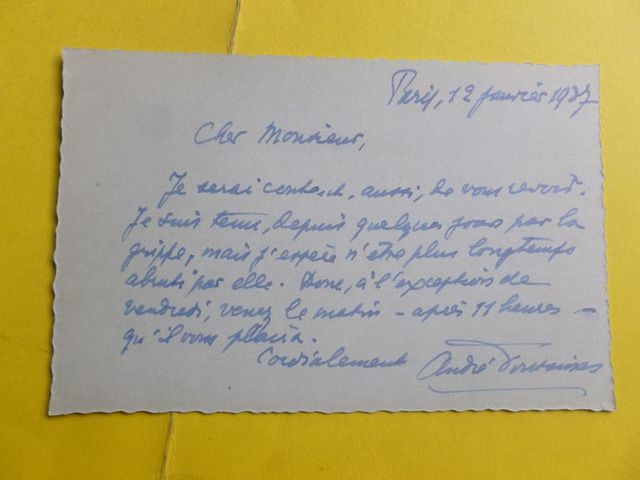 Paris, 12 janvier 1937
Cher Monsieur,
Je serai content, aussi, de vous revoir.
Je suis tenu, depuis quelques jours par la
grippe, mais j'espère n'être plus longtemps
abruti par elle. Donc, à l'exception de
vendredi, venez le matin – après 11 heures –
qu'il vous plaira.
Cordialement
André Fontainas